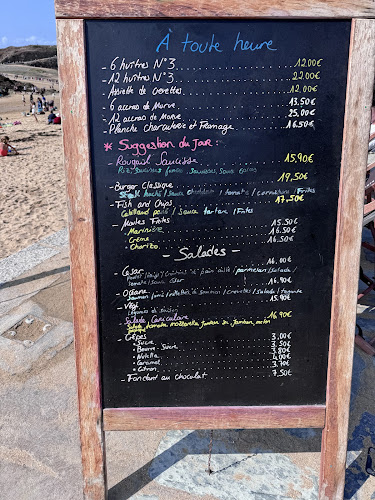 À toute heure
- 6 huîtres N°3 12.00€
- 12 huîtres N°3 22.00€
- Assiette de crevettes 12.00€
- 6 accras de Morue 13.50€
- 12 accras de Morue 25.00€
- Planche charcuterie et Fromage 16.50€
* Suggestion du Jour :
- Rougail Saucisse 15,90€
Riz / Saucisses
- Burger Classique 19,50€
Steak haché / sauce / tomate / cornichons / Frites
- Fish and Chips 17,50€
Cabillaud pané / sauce tartare / Frites
- Moules Frites
• Marinière 15.50€
• Crème 16.50€
• Chorizo 16.50€
- Salades -
- César 16.00€
Poulet / / parmesan / salade /
tomate / sauce césar
- Océane 16.90€
Saumon fumé / rillettes de saumon / crevettes / salade / tomate
- Végé 15.90€
légumes de saison
- Salade 16.90€
Salade tomate mozzarella jambon melon
- Crêpes
• Sucre 3.00€
• Beurre - Sucre 3.50€
• Nutella 3.80€
• Caramel 4.00€
• Citron 3.70€
- Fondant au chocolat 7.50€